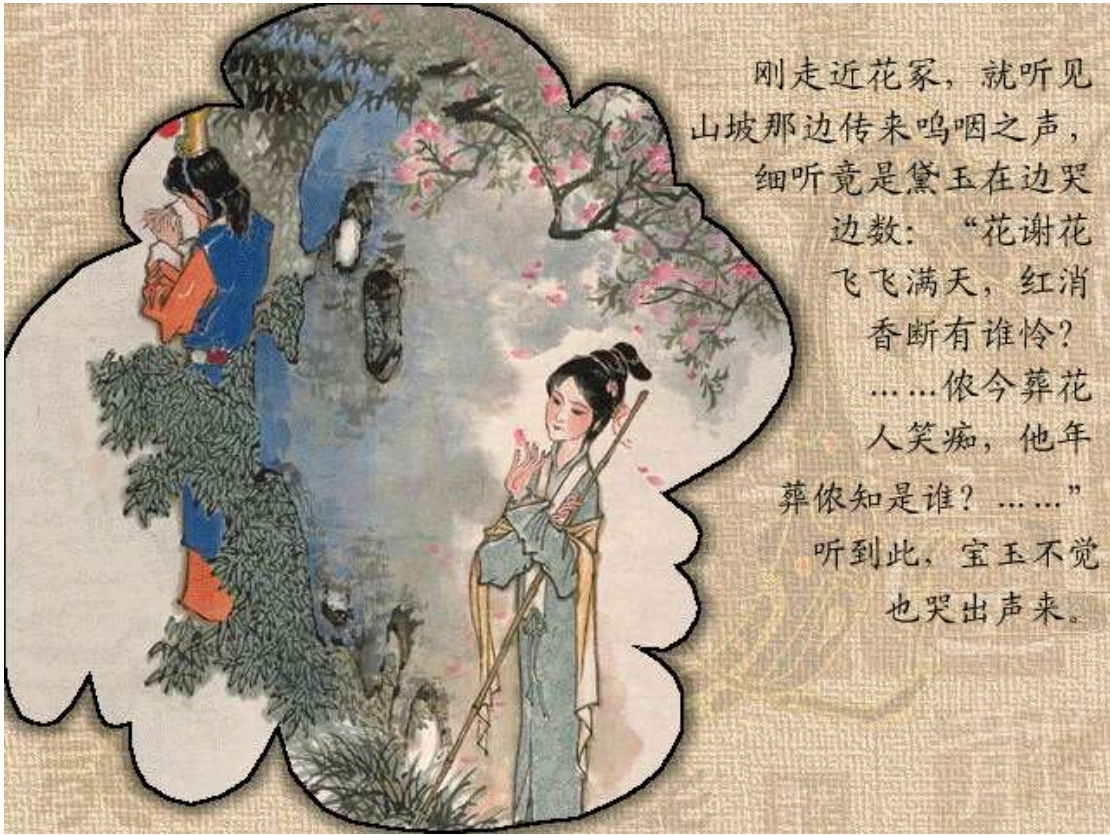 刚走近花冢，就听见
山坡那边传来呜咽之声，
细听竟是黛玉在边哭
边数：“花谢花
飞飞满天，红消
香断有谁怜？
……侬今葬花
人笑痴，他年
葬侬知是谁？……”
听到此，宝玉不觉
也哭出声来。